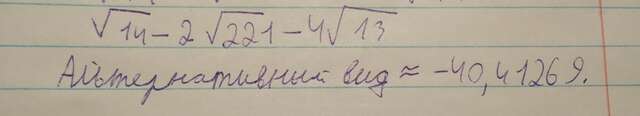 √14 - 2 √221 - 4√13
Альтернативный вид ≈ -40,41269.